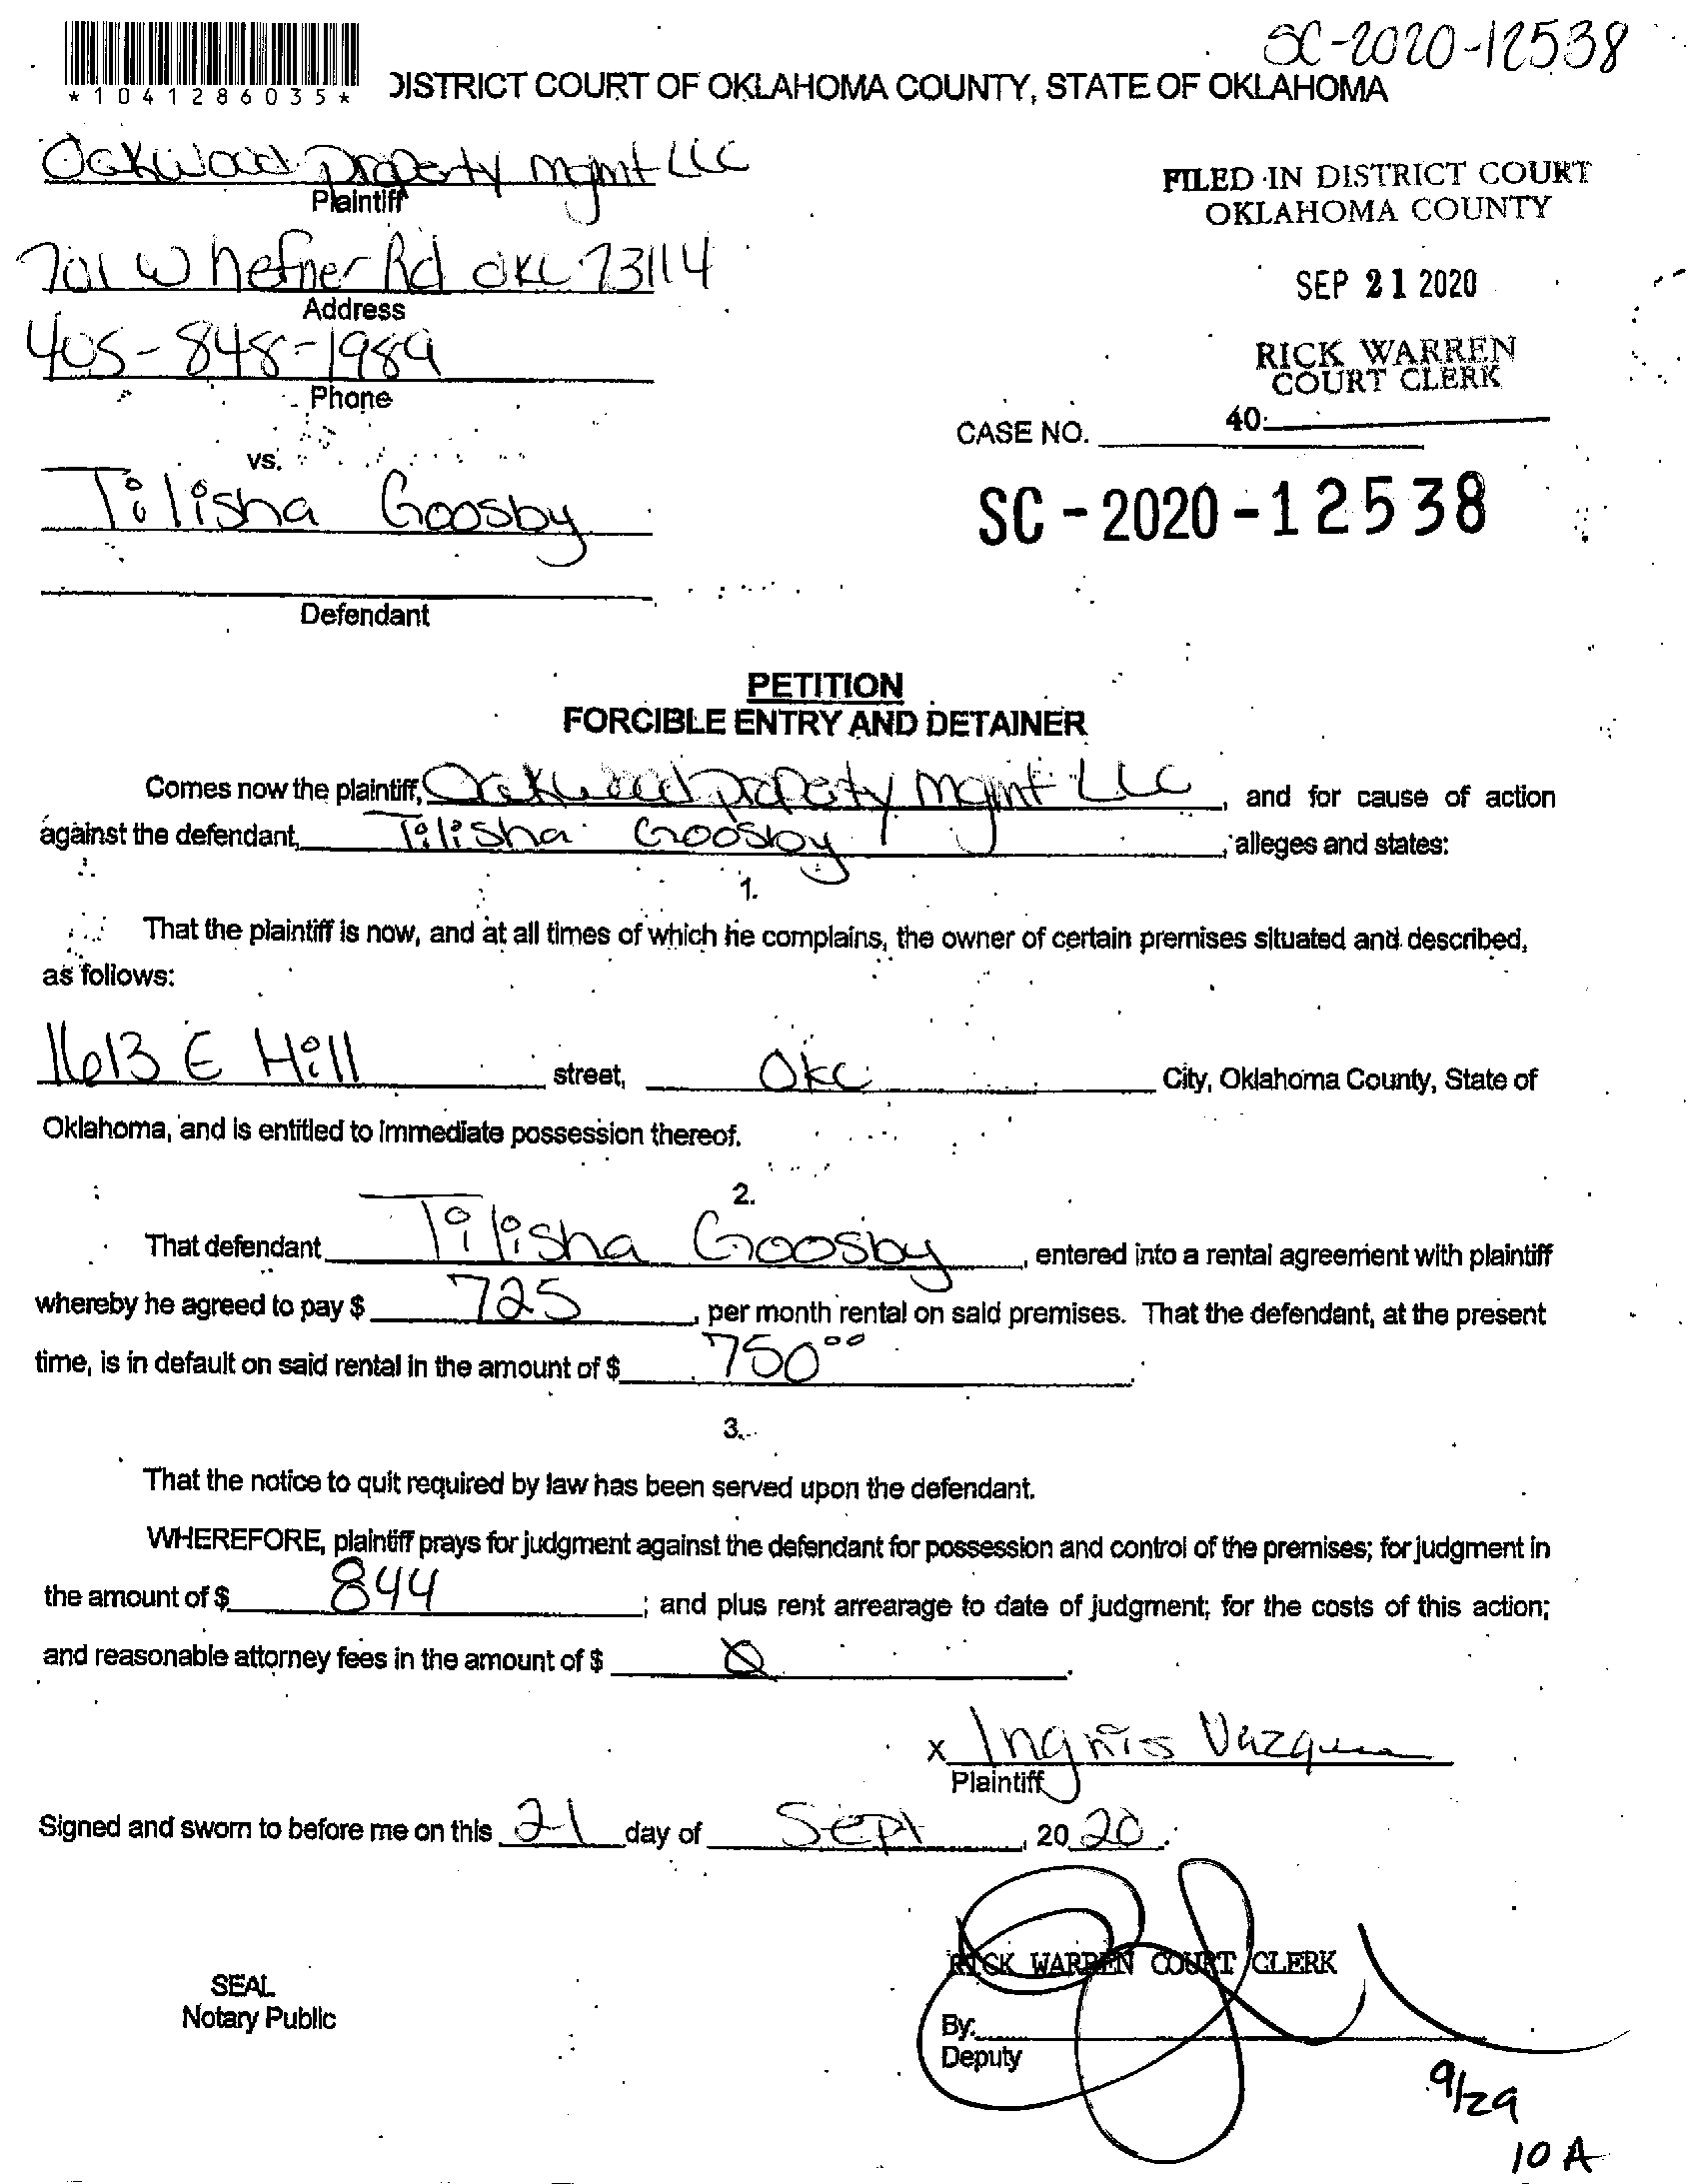 SC-2020-12538
*1041286035*
DISTRICT COURT OF OKLAHOMA COUNTY, STATE OF OKLAHOMA
Oakwood Property Mgmt LLC
Plaintiff
FILED IN DISTRICT COURT
OKLAHOMA COUNTY
701 W hefner Rd OKC 73114
Address
SEP 21 2020
405-848-1989
Phone
RICK WARREN
COURT CLERK
40
CASE NO.
vs.
Tilisha Goosby
SC-2020-12538
Defendant
PETITION
FORCIBLE ENTRY AND DETAINER
Comes now the plaintiff, Oakwood Property Mgmt LLC, and for cause of action
against the defendant, Tilisha Goosby, alleges and states:
1.
That the plaintiff is now, and at all times of which he complains, the owner of certain premises situated and described,
as follows:
1613 E Hill street, Okc City, Oklahoma County, State of
Oklahoma, and is entitled to immediate possession thereof.
2.
That defendant Tilisha Goosby, entered into a rental agreement with plaintiff
whereby he agreed to pay $ 725, per month rental on said premises. That the defendant, at the present
time, is in default on said rental in the amount of $ 750 00.
3.
That the notice to quit required by law has been served upon the defendant.
WHEREFORE, plaintiff prays for judgment against the defendant for possession and control of the premises; for judgment in
the amount of $ 844; and plus rent arrearage to date of judgment; for the costs of this action;
and reasonable attorney fees in the amount of $ 0.
x Ingris Vazquez
Plaintiff
Signed and sworn to before me on this 21 day of Sept, 2020.
RICK WARREN COURT CLERK
SEAL
Notary Public
By:
Deputy
9/29
10 A